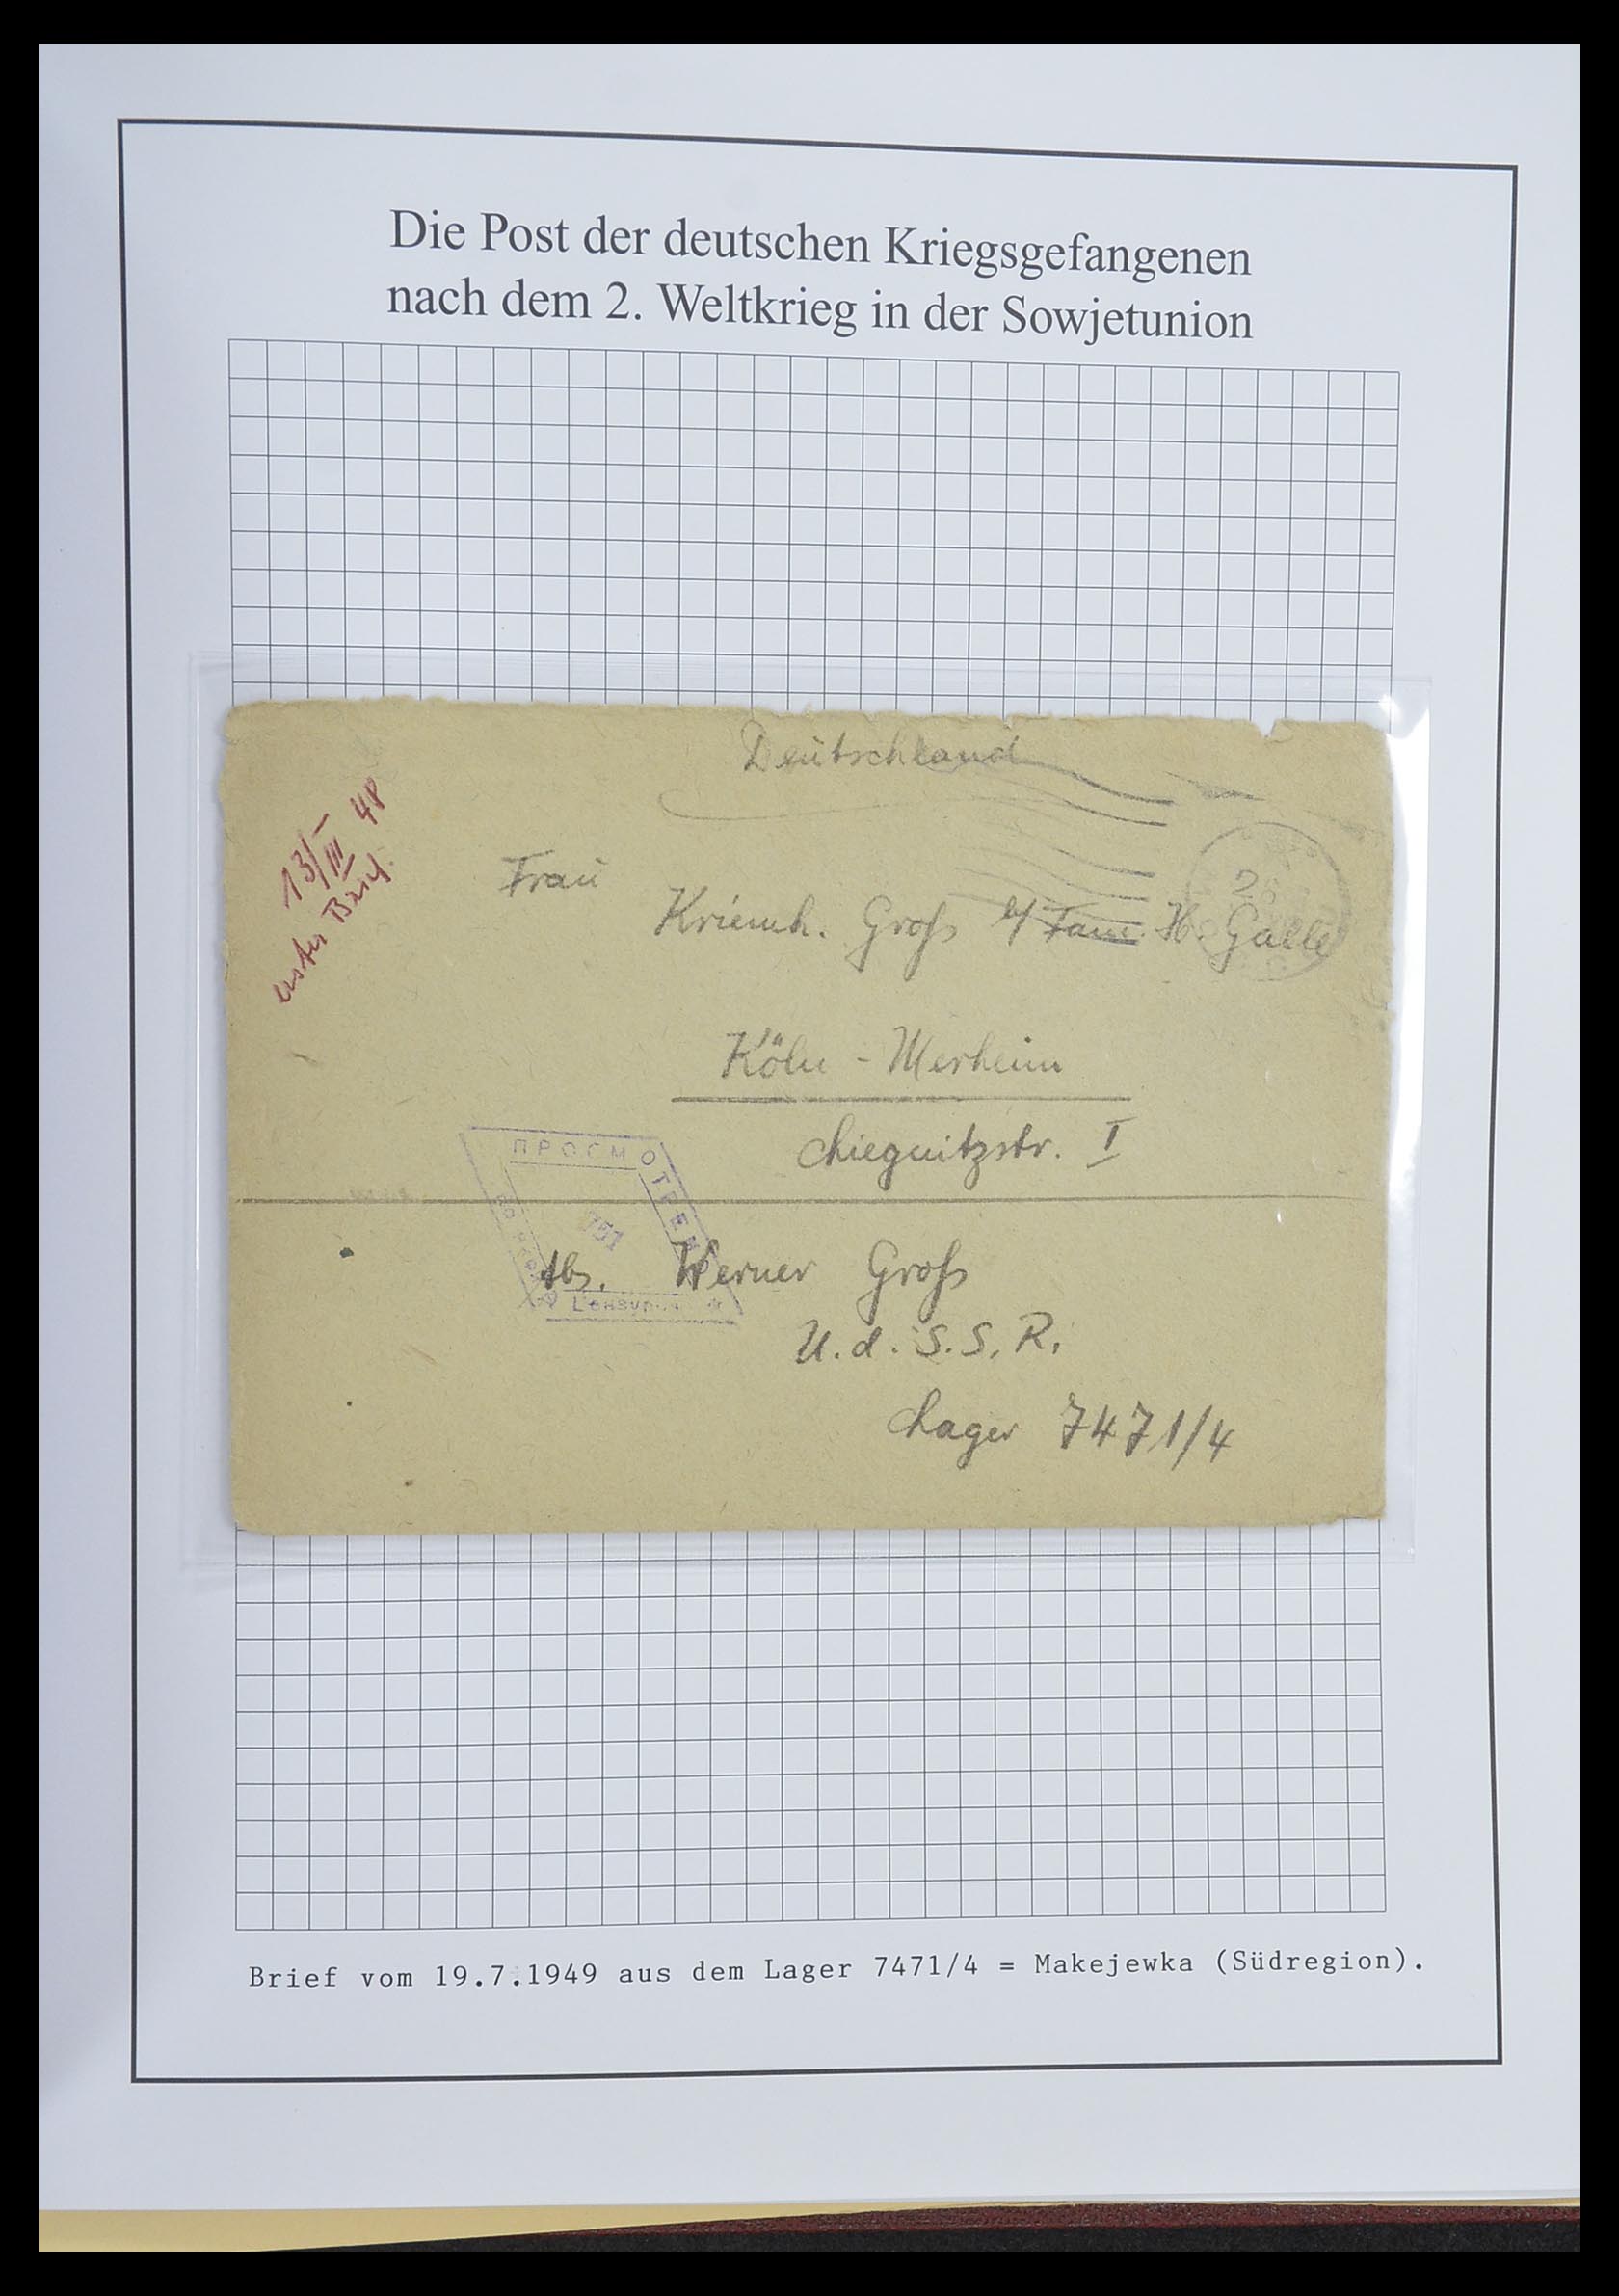 Die Post der deutschen Kriegsgefangenen
nach dem 2. Weltkrieg in der Sowjetunion
Deutschland
13/III 48
erster Brief.
Frau
Kriemh. Groß b/ Fam. H. Galle
Köln - Merheim
Liegnitzstr. I
ПРОСМОТРЕНО
151
Цензурой
Abs. Werner Groß
U.d.S.S.R.
Lager 7471/4
Brief vom 19.7.1949 aus dem Lager 7471/4 = Makejewka (Südregion).